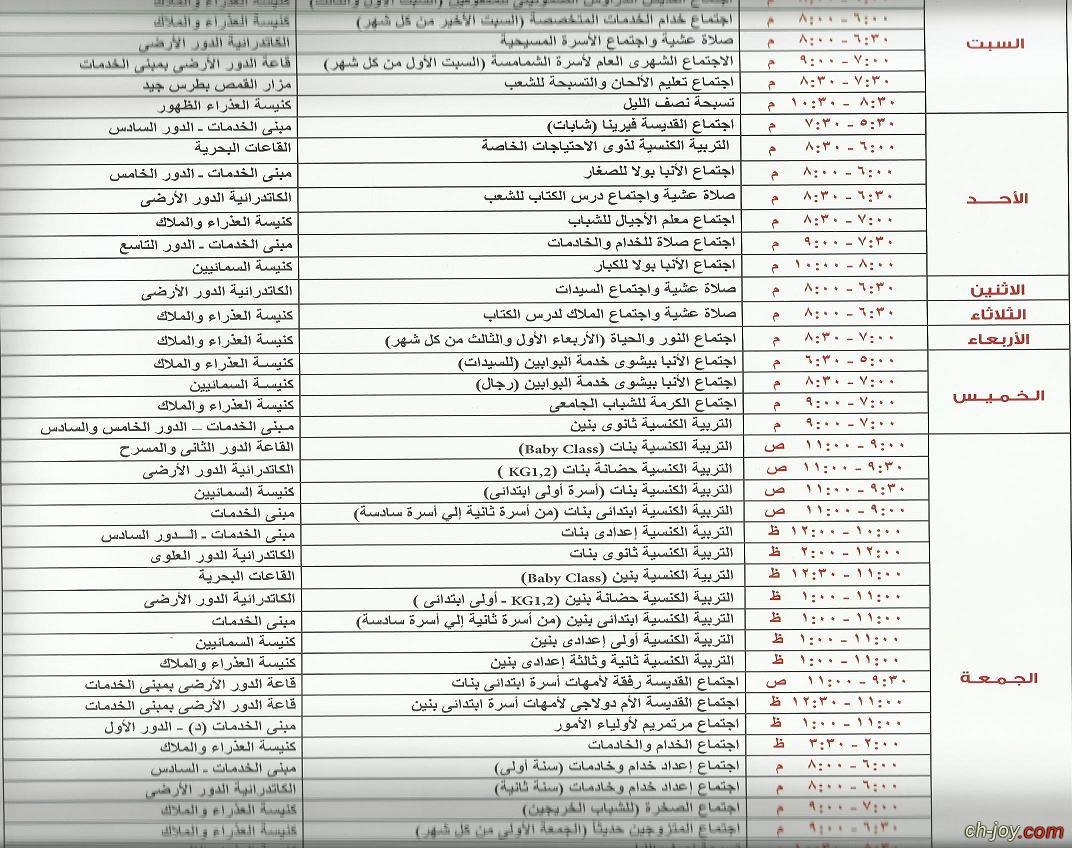 السبت
٦:٠٠ - ٨:٠٠ م اجتماع خدام الخدمات المتخصصة (السبت الأخير من كل شهر) كنيسة العذراء والملاك
٦:٣٠ - ٨:٠٠ م صلاة عشية واجتماع الأسرة المسيحية الكاتدرائية الدور الأرضى
٧:٠٠ - ٩:٠٠ م الاجتماع الشهرى العام لأسرة الشمامسة (السبت الأول من كل شهر) قاعة الدور الأرضى بمبنى الخدمات
٧:٣٠ - ٨:٣٠ م اجتماع تعليم الألحان والتسبحة للشعب مزار القمص بطرس جيد
٨:٣٠ - ١٠:٣٠ م تسبحة نصف الليل كنيسة العذراء الظهور
الأحـــد
٥:٣٠ - ٧:٣٠ م اجتماع القديسة فيرينا (شابات) مبنى الخدمات - الدور السادس
٦:٠٠ - ٨:٣٠ م التربية الكنسية لذوى الاحتياجات الخاصة القاعات البحرية
٦:٠٠ - ٨:٠٠ م اجتماع الأنبا بولا للصغار مبنى الخدمات - الدور الخامس
٦:٣٠ - ٨:٣٠ م صلاة عشية واجتماع درس الكتاب للشعب الكاتدرائية الدور الأرضى
٧:٠٠ - ٨:٣٠ م اجتماع معلم الأجيال للشباب كنيسة العذراء والملاك
٧:٣٠ - ٩:٠٠ م اجتماع صلاة للخدام والخادمات مبنى الخدمات - الدور التاسع
٨:٠٠ - ١٠:٠٠ م اجتماع الأنبا بولا للكبار كنيسة السمائيين
الاثنين ٦:٣٠ - ٨:٠٠ م صلاة عشية واجتماع السيدات الكاتدرائية الدور الأرضى
الثلاثاء ٦:٣٠ - ٨:٠٠ م صلاة عشية واجتماع الملاك لدرس الكتاب كنيسة العذراء والملاك
الأربعاء ٧:٠٠ - ٨:٣٠ م اجتماع النور والحياة (الأربعاء الأول والثالث من كل شهر) كنيسة العذراء والملاك
الخميس
٥:٠٠ - ٦:٣٠ م اجتماع الأنبا بيشوى خدمة البوابين (للسيدات) كنيسة العذراء والملاك
٧:٠٠ - ٨:٣٠ م اجتماع الأنبا بيشوى خدمة البوابين (رجال) كنيسة السمائيين
٧:٠٠ - ٩:٠٠ م اجتماع الكرمة للشباب الجامعى كنيسة العذراء والملاك
٧:٠٠ - ٩:٠٠ م التربية الكنسية ثانوى بنين مبنى الخدمات - الدور الخامس والسادس
الجمعة
٩:٠٠ - ١١:٠٠ ص التربية الكنسية بنات (Baby Class) القاعة الدور الثانى والمسرح
٩:٣٠ - ١١:٠٠ ص التربية الكنسية حضانة بنات (KG1,2 ) الكاتدرائية الدور الأرضى
٩:٣٠ - ١١:٠٠ ص التربية الكنسية بنات (أسرة أولى ابتدائى) كنيسة السمائيين
٩:٠٠ - ١١:٠٠ ص التربية الكنسية ابتدائى بنات (من أسرة ثانية إلي أسرة سادسة) مبنى الخدمات
١٠:٠٠ - ١٢:٠٠ ظ التربية الكنسية إعدادى بنات مبنى الخدمات - الــدور السادس
١٢:٠٠ - ٢:٠٠ ظ التربية الكنسية ثانوى بنات الكاتدرائية الدور العلوى
١١:٠٠ - ١٢:٣٠ ظ التربية الكنسية بنين (Baby Class) القاعات البحرية
١١:٠٠ - ١:٠٠ ظ التربية الكنسية حضانة بنين (KG1,2 - أولى ابتدائى ) الكاتدرائية الدور الأرضى
١١:٠٠ - ١:٠٠ ظ التربية الكنسية ابتدائى بنين (من أسرة ثانية إلي أسرة سادسة) مبنى الخدمات
١١:٠٠ - ١:٠٠ ظ التربية الكنسية أولى إعدادى بنين كنيسة السمائيين
١١:٠٠ - ١:٠٠ ظ التربية الكنسية ثانية وثالثة إعدادى بنين كنيسة العذراء والملاك
٩:٣٠ - ١١:٠٠ ص اجتماع القديسة رفقة لأمهات أسرة ابتدائى بنات قاعة الدور الأرضى بمبنى الخدمات
١١:٠٠ - ١٢:٣٠ ظ اجتماع القديسة الأم دولاجى لأمهات أسرة ابتدائى بنين قاعة الدور الأرضى بمبنى الخدمات
١١:٠٠ - ١:٠٠ ظ اجتماع مرتمريم لأولياء الأمور مبنى الخدمات (د) - الدور الأول
٢:٠٠ - ٣:٣٠ ظ اجتماع الخدام والخادمات كنيسة العذراء والملاك
٦:٠٠ - ٨:٠٠ م اجتماع إعداد خدام وخادمات (سنة أولى) مبنى الخدمات - السادس
٦:٠٠ - ٨:٠٠ م اجتماع إعداد خدام وخادمات (سنة ثانية) الكاتدرائية الدور الأرضى
٧:٠٠ - ٩:٠٠ م اجتماع الصخرة (للشباب الخريجين) كنيسة العذراء والملاك
٦:٣٠ - ٩:٠٠ م اجتماع المتزوجين حديثاً (الجمعة الأولى من كل شهر) كنيسة العذراء والملاك
ch-joy.com